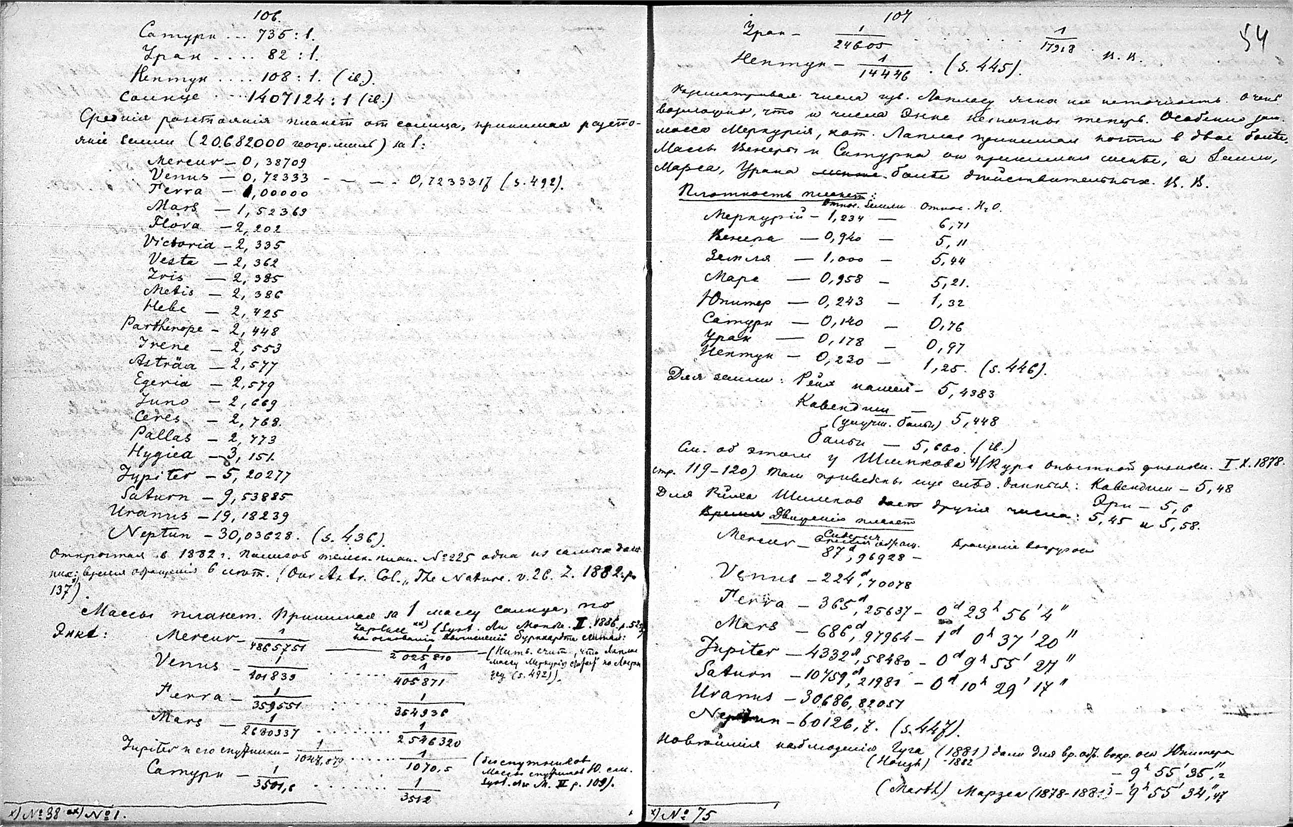 106
Сатурн ... 735 : 1.
Уран .... 82 : 1.
Нептун .... 108 : 1. (ib.)
Солнце ... 1407124 : 1 (ib.)
Среднія разстоянія планет от солнца, принимая разсто-
яніе земли (20.682000 геогр. миль) за 1:
Mercur — 0,38709
Venus — 0,72333 — — — 0,7233317 (s. 492).
Terra — 1,00000
Mars — 1,52369
Flora — 2,202
Victoria — 2,335
Vesta — 2,362
Iris — 2,385
Metis — 2,386
Hebe — 2,425
Parthenope — 2,448
Irene — 2,553
Asträa — 2,577
Egeria — 2,579
Juno — 2,669
Ceres — 2,768
Pallas — 2,773
Hygiea — 3,151
Jupiter — 5,20277
Saturn — 9,53885
Uranus — 19,18239
Neptun — 30,03628. (s. 436).
Открытая в 1882 г. Пализом телеск. план. № 225 одна из самых
время обращения 6 (Our Astr. Col., The Nature. v. 26. 1882. p.
137).
Массы планет. Принимая за 1 массу солнца, по
Энке:
Laplace xx) (Syst. du Monde. II. 1836.
на основании вычислений Бурхардта
Mercur — 1/4865751 1/2025810 —
(s. 492)).
Venus — 1/401839 ...... 1/405871
Terra — 1/359551 ...... 1/354936
Mars — 1/2680337 ...... 1/2546320
Jupiter и его спутники — 1/1047,879 ...... 1/1070,5 (без спутников
Массы спутников Ю. см.
Syst. du M. II p. 109).
Сатурн — 1/3501,6 ...... 1/3512
x) № 38 xx) № 1.
107
54
Уран — 1/24605 ...... 1/17918
Нептун — 1/14446. (s. 445).
Н. К.
Рассматривая числа Лапласу ясна их неточность. Очень
вероятно, что и числа Энке неточны теперь. Особенно
масса Меркурія, кот. Лаплас принимал почти в двое более.
Массы Венеры и Сатурна он принимал менее, а Земли,
Марса, Урана более действительных. Н. К.
Плотность планет:
Относ. земли Относ. H₂O.
Меркурій — 1,234 — 6,71
Венера — 0,940 — 5,11
Земля — 1,000 — 5,44
Марс — 0,958 — 5,21.
Юпитер — 0,243 — 1,32
Сатурн — 0,140 — 0,76
Уран — 0,178 — 0,97
Нептун — 0,230 — 1,25. (s. 446).
Для земли: Рейх нашел — 5,4383
Кавендиш — 5,448
Бальи — 5,660. (ib.)
См. об этом у Шимкова x) (Курс опытной физики. I. Х. 1878.
стр. 119—120) Там приведены еще след. данныя: Кавендиш — 5,48
Эри — 5,6
Для Рейха Шимков дает другія числа: 5,45 и 5,58.
Время Движенія планет
Сидерич. обращ. Вращеніе вокруг оси
Mercur — 87ᵈ,96928 —
Venus — 224ᵈ,70078
Terra — 365ᵈ,25637 — 0ᵈ 23ʰ 56′ 4″
Mars — 686ᵈ,97964 — 1ᵈ 0ʰ 37′ 20″
Jupiter — 4332ᵈ,58480 — 0ᵈ 9ʰ 55′ 27″
Saturn — 10759ᵈ,21981 — 0ᵈ 10ʰ 29′ 17″
Uranus — 30686,82051
Neptun — 60126,7. (s. 447).
Новейшія наблюденія Гуга (1881) дали для вр. об. вокр. оси Юпитера
(Hough) 1882 — 9ʰ 55′ 35″,2
(Marth) Марзеа (1878-1881) — 9ʰ 55′ 34″,47
x) № 75